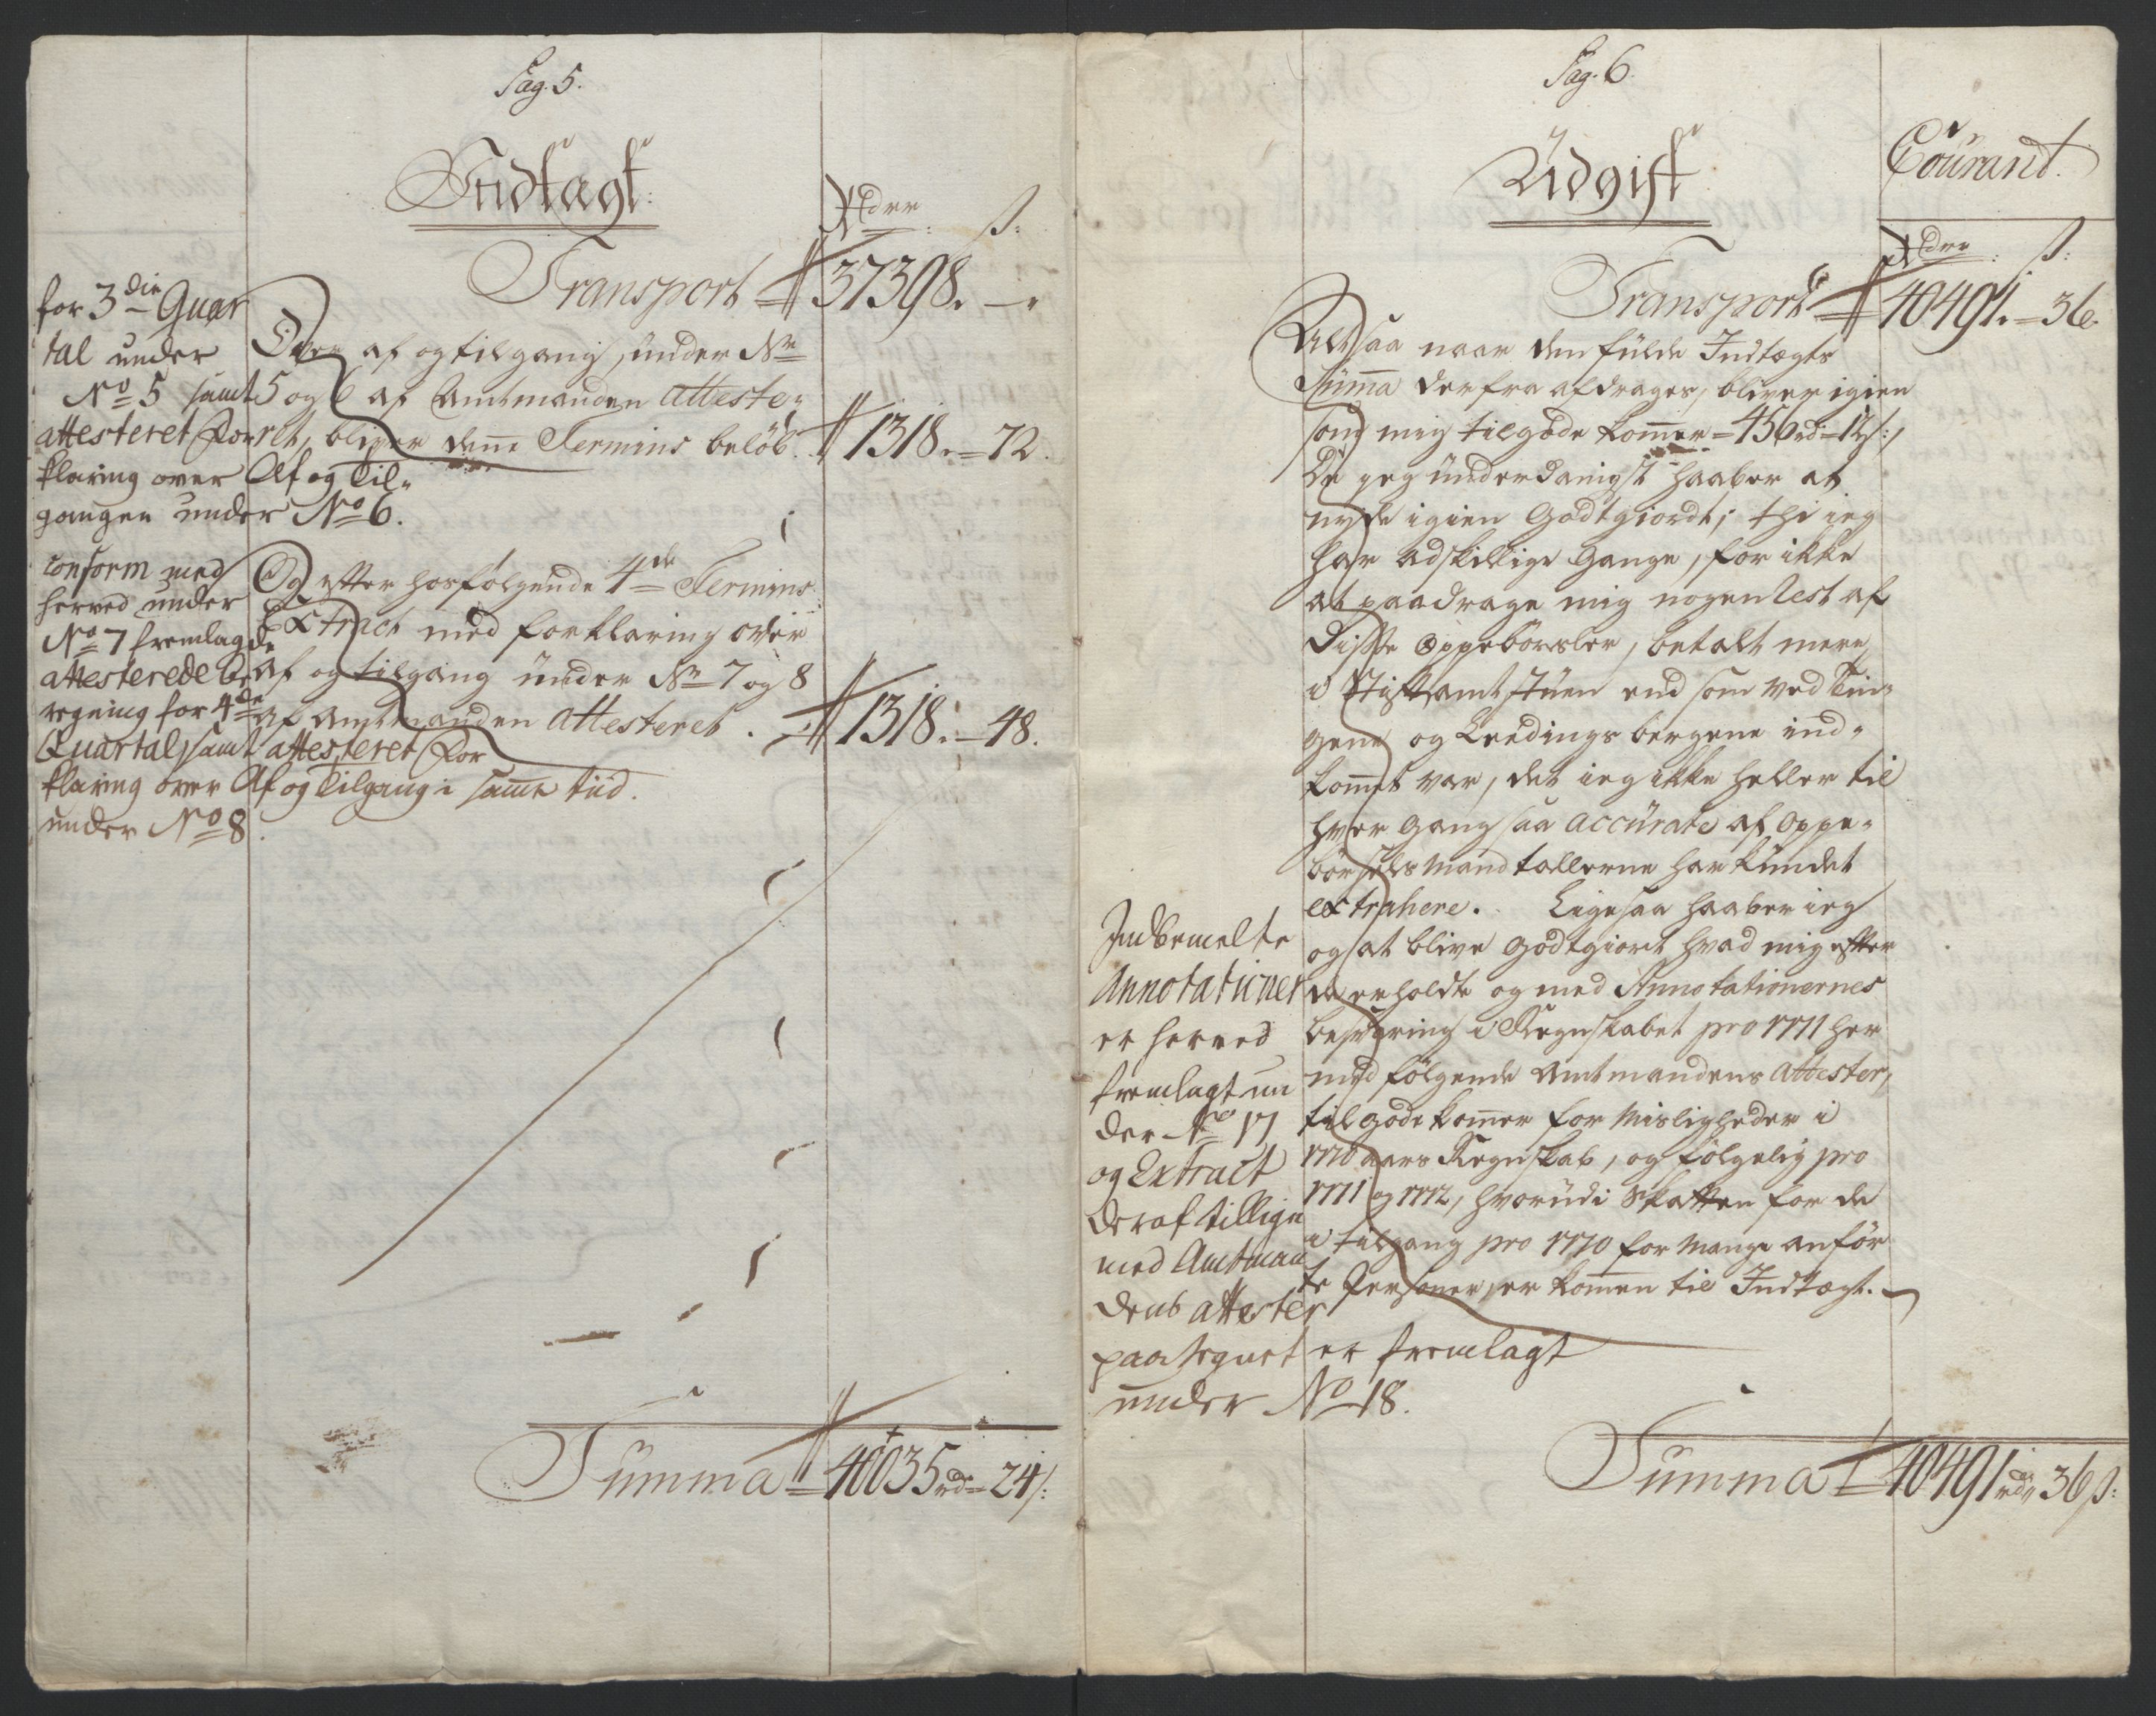 Pag. 5.
Indtægt:
Rdlr. ß:
Transport 37398. —.
for 3die Quar
tal under
No 5 samt
attesteret For
klaring over Af og Til-
gangen under No 6.
Over af og tilgang, under Nr
5 og 6 af Amtmanden atteste-
ret, bliver denne Termins beløb. 1318. = 72.
conform med
herved under
No 7 fremlagde
attesterede be
regning for 4de
Quartal, samt attesteret For
klaring over Af og Tilgang i samme tiid.
under No 8.
Og efter hosfølgende 4de Termins
Extract med forklaring over
af og tilgang under Nr 7 og 8
af Amtmanden attesteret. 1318. — 48.
Summa 40035 rd = 24 ß:
Pag. 6.
Udgift
Courant.
Rdlr. ß:
Transport 40491. = 36.
Altsaa naar den fulde Indtægts
Summa derfra afdrages, bliver igien
som mig tilgode kommer = 456 rd = 12 ß:,
De jeg underdanigst haaber at
nyde igien Godtgiordt; thi ieg
har adskillige Gange, for ikke
at paadrage mig nogen Rest af
disse Oppebørsler, betalt mere
i Stiftamtstuen end som ved Tin-
gene og Leedingsbergene ind-
kommet var, det ieg ikke heller til
hver Gang saa accurate af Oppe-
børsels Mandtallerne har kundet
extrahere. Ligesaa haaber ieg
og at blive Godtgiort hvad mig efter
de erholdte og med Annotationernes
besvaring i Regnskabet pro 1771 her
med følgende Amtmandens attester,
tilgode kommer for Misligheder i
1770 aars Regnskab, og følgelig pro
1771 og 1772, hvorudi Skatten for de
i tilgang pro 1770 for Mange anfør
te Personer, er kommen til Indtægt.
Indbemelte
Annotationer
er herved
fremlagt un
der No 17
og Extract
deraf tillige
med Amtman
dens attester
paategnet er fremlagt
under No 18.
Summa 40491 rd 36 ß: